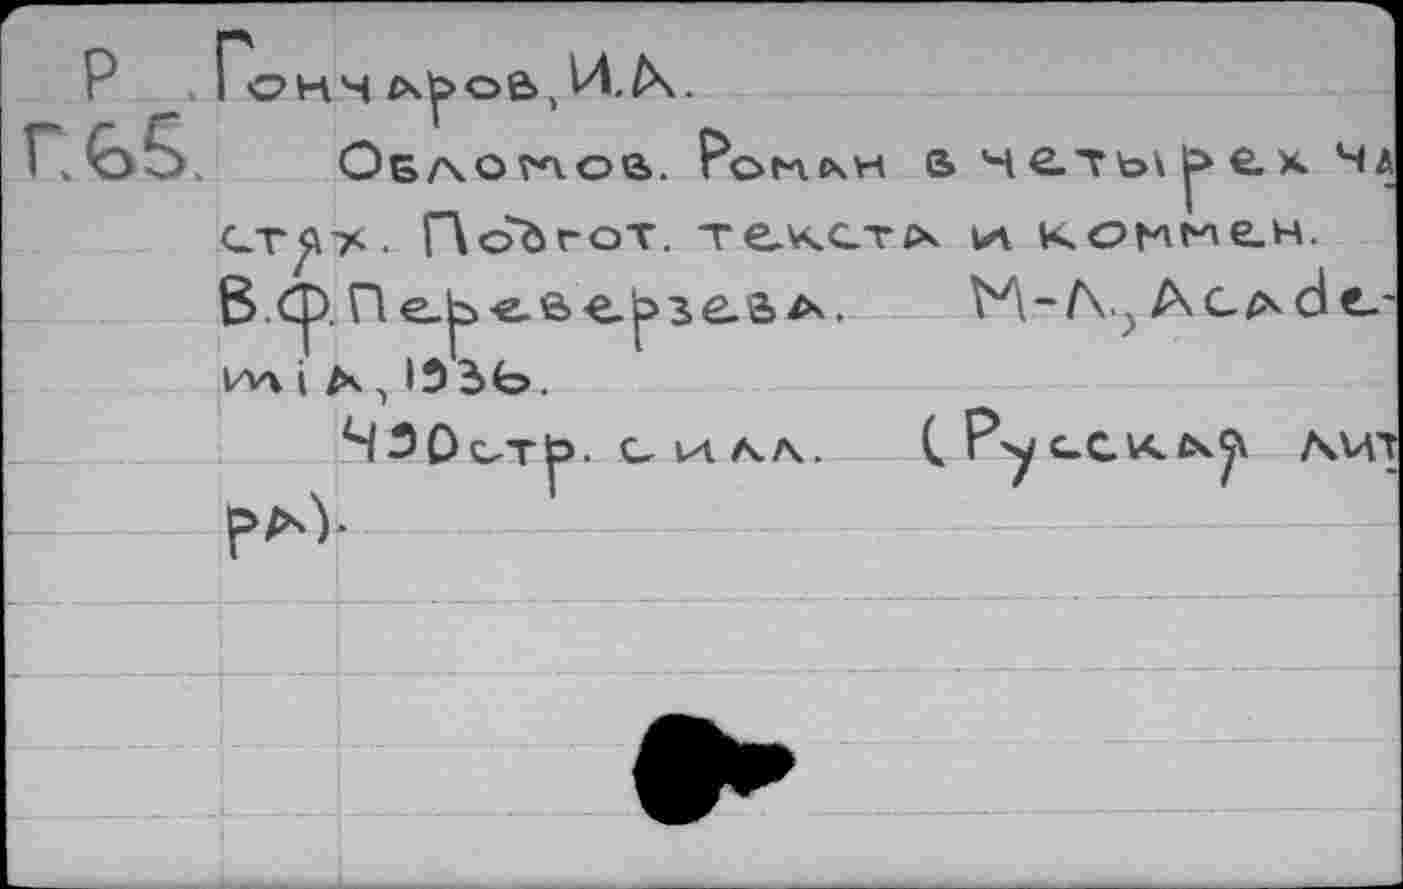 Р Гончаров, И.А.
Г.65. Обломов. Роман в четырех ча
стях. Подгот. текста и коммен.
В.Ф. Переверзева. М-Л., Acade-
mia, 1936.
490 стр. с илл. (Русская лит
ра).